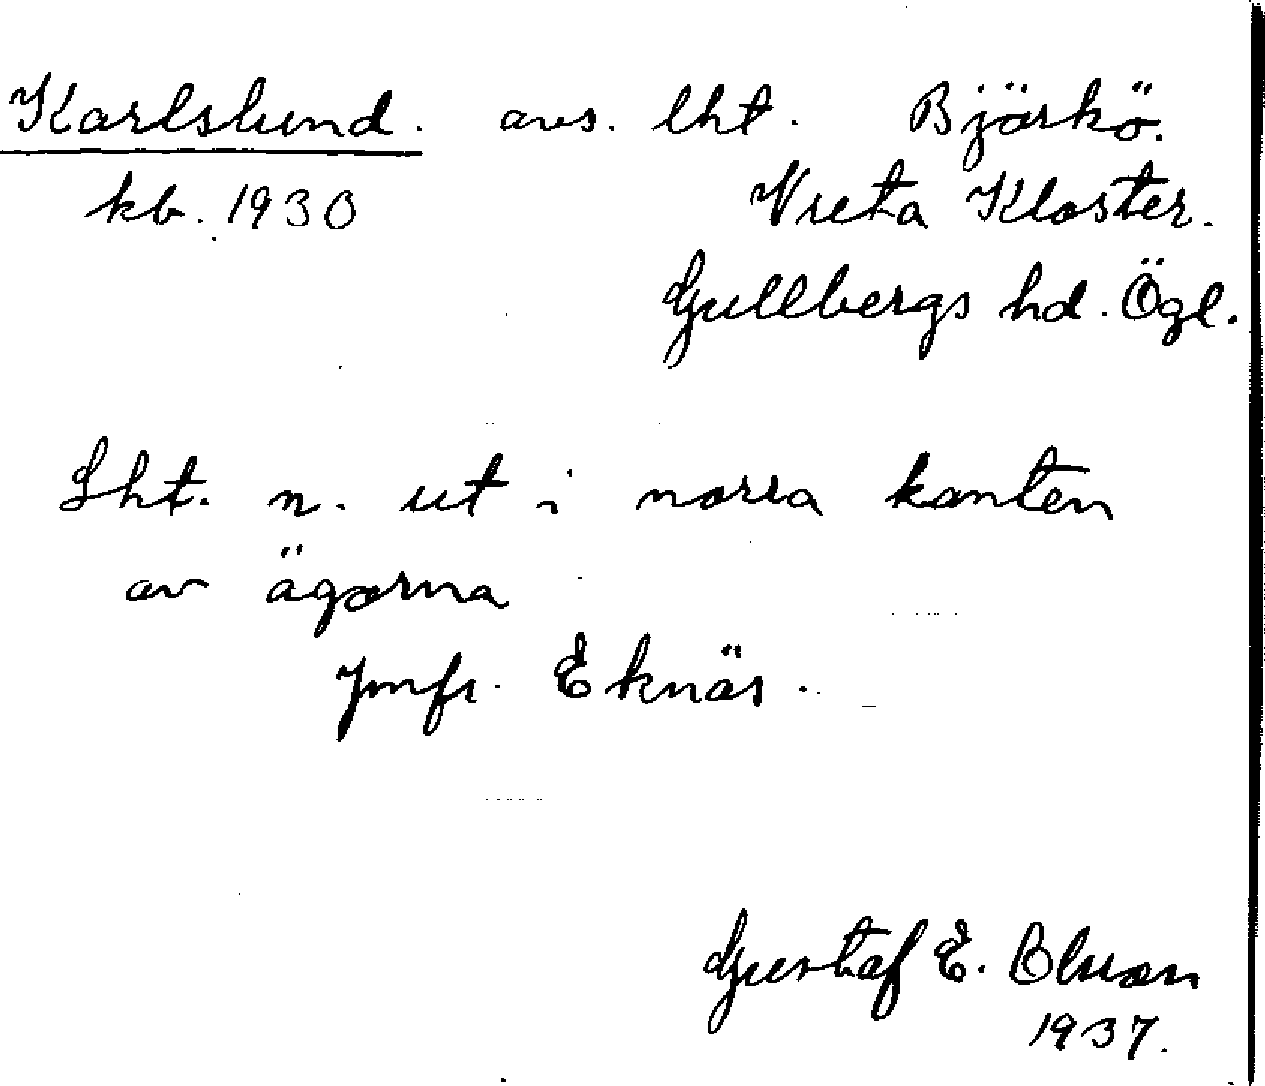 Karlslund. avs. lht. Björkö.
kb. 1930 Vreta Kloster.
Gullbergs hd. Ögl.
Lht. n. ut i norra kanten
av ägorna
Jmfr. Eknäs.
Gustaf E.
1937.